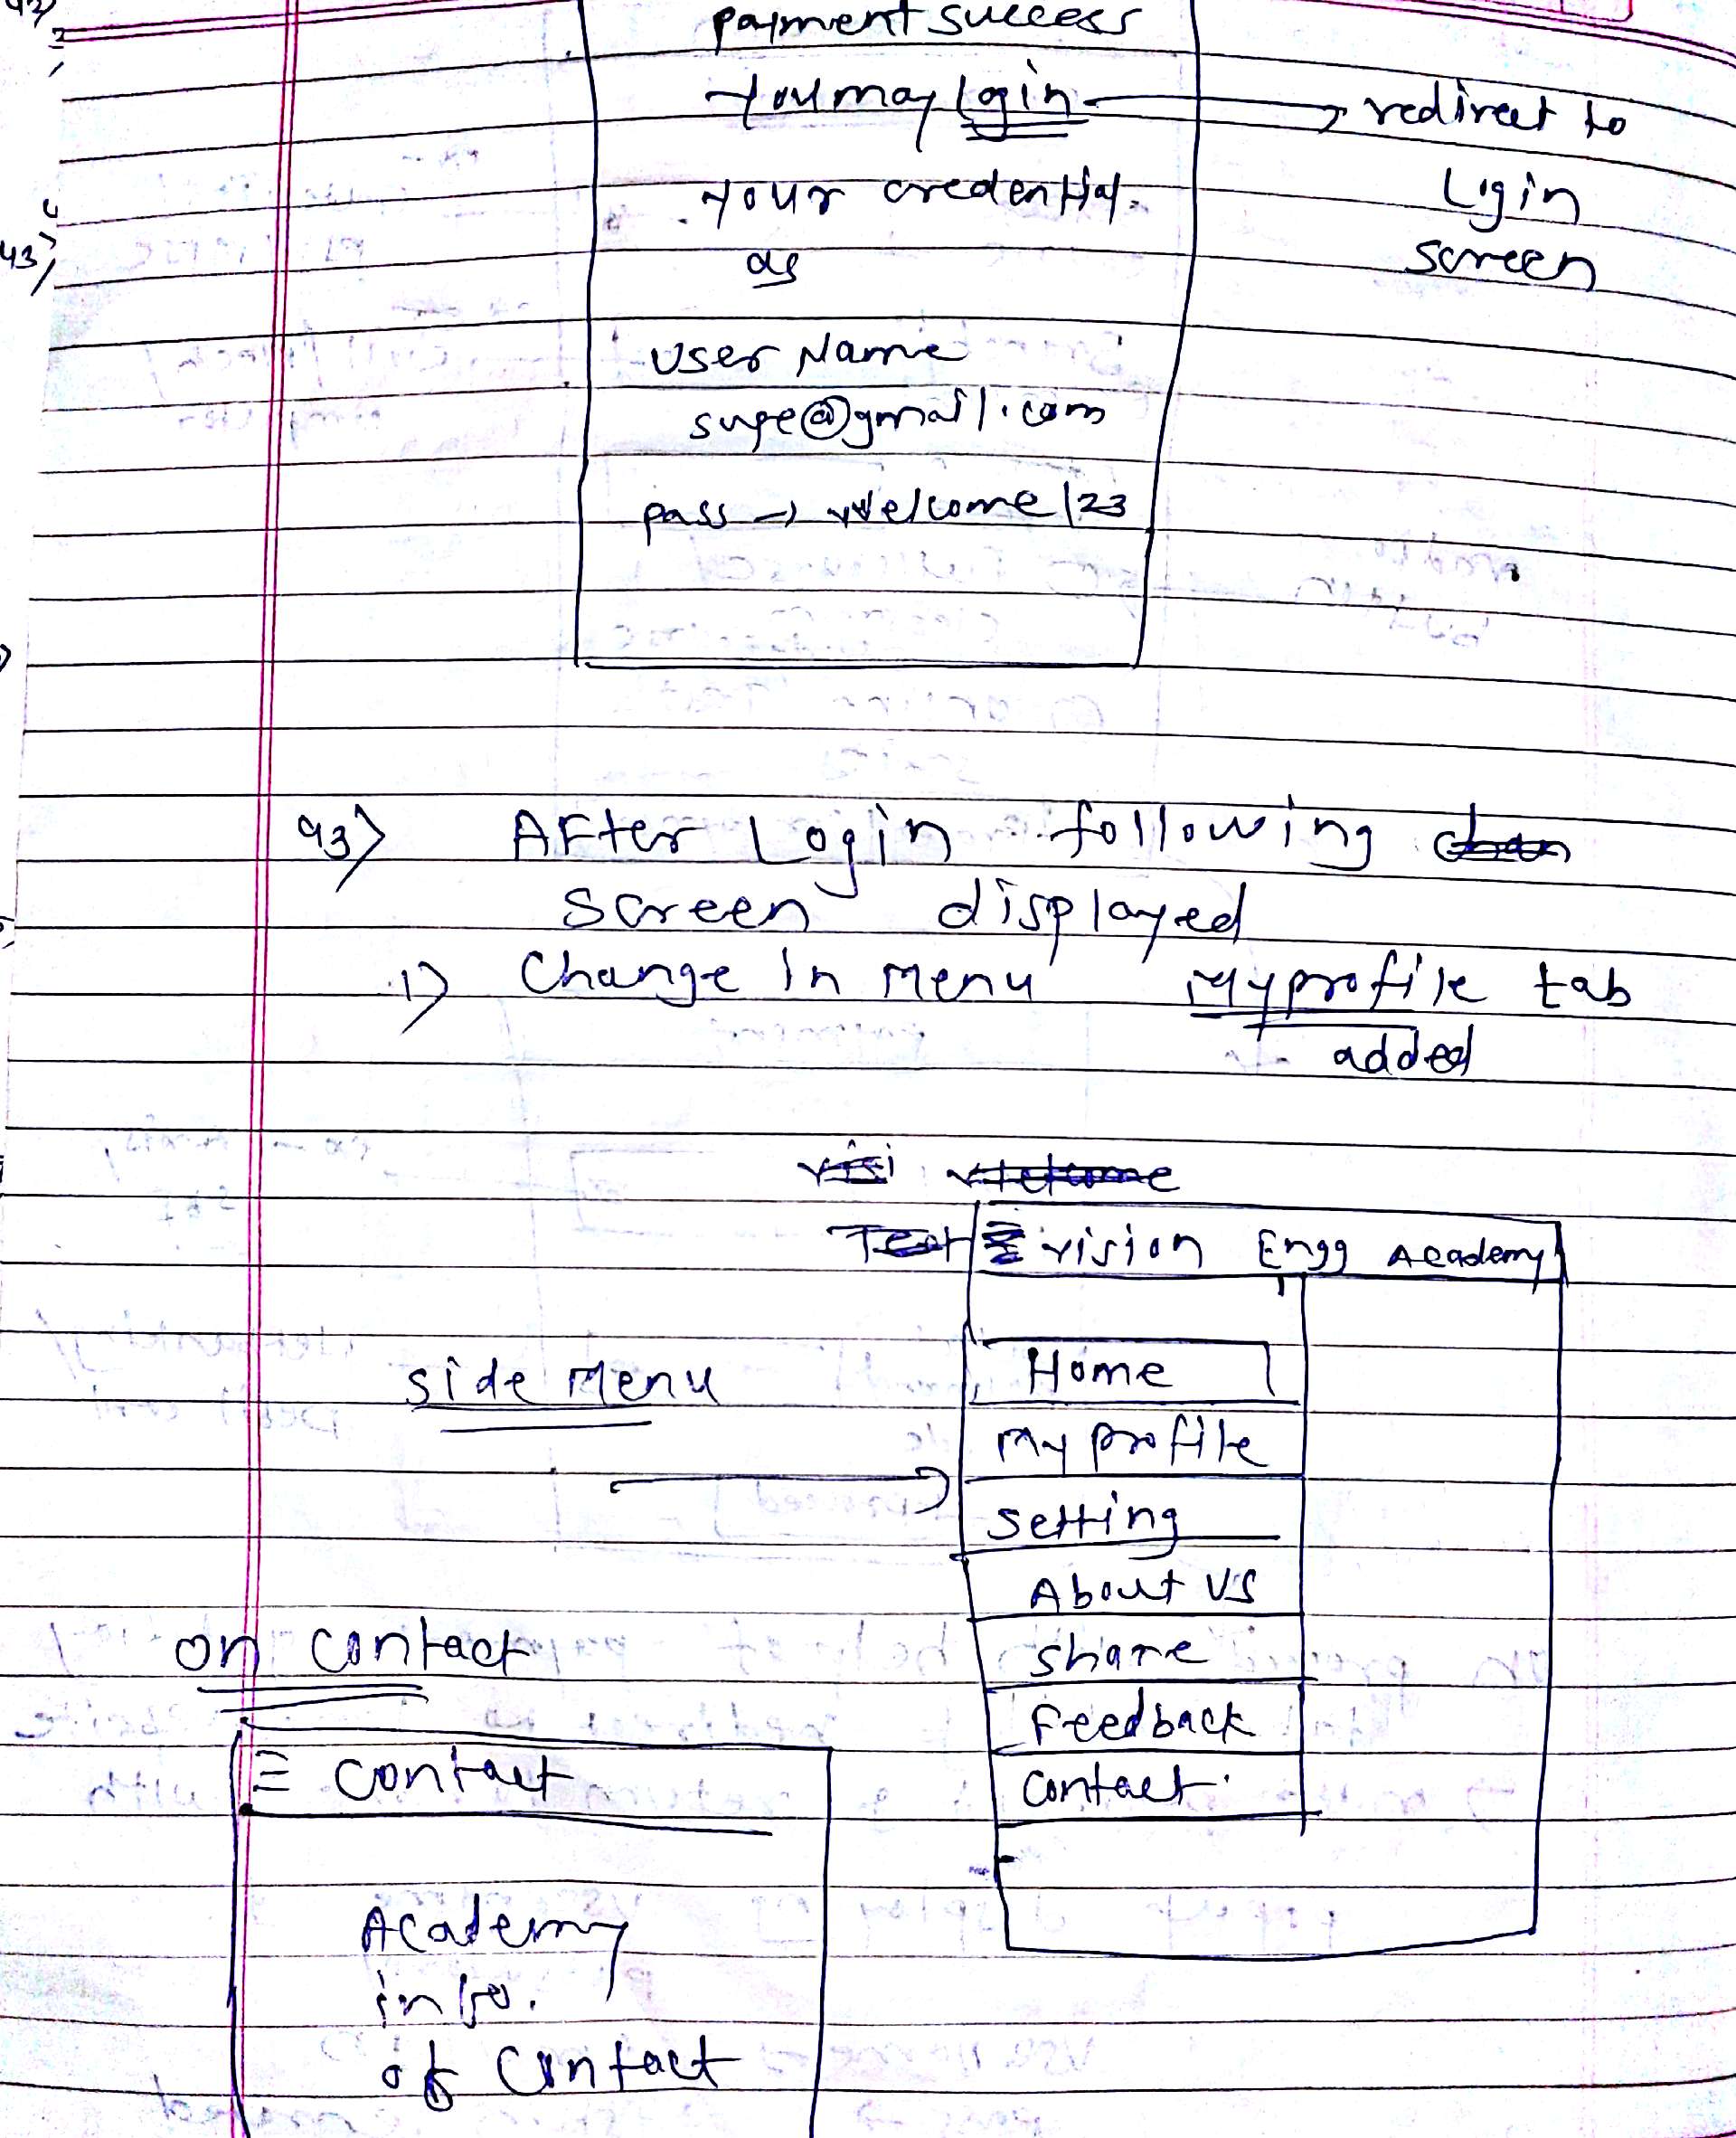 payment success
You may login → redirect to
your credential. Login
as screen
User Name
suye@gmail.com
pass → Welcome123
43) After Login following
screen displayed
1) Change In Menu Myprofile tab
added
≡ Vision Engg Academy
Side Menu
Home
My profile
Setting
About Us
Share
Feedback
Contact
on contact
≡ Contact
Academy
info.
of Contact